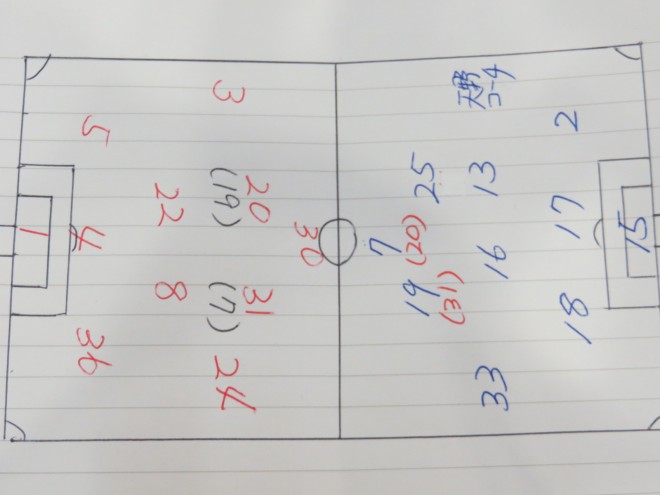 1
5
4
36
22
8
3
20
(19)
31
(7)
24
30
25
7
(20)
19
(31)
13
16
33
2
17
18
15